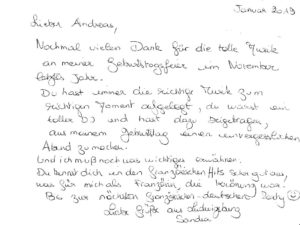 Januar 2019
Lieber Andreas,
Nochmal vielen Dank für die tolle Musik
an meiner Geburtstagsfeier im November
letztes Jahr.
Du hast immer die richtige Musik zum
richtigen Moment aufgelegt, du warst ein
toller DJ und hast dazu beigetragen,
aus meinem Geburtstag einen unvergesslichen
Abend zu machen.
Und ich muß noch was wichtiges erwähnen.
Du kennst dich in den französischen Hits sehr gut aus,
was für mich als Französin, die Krönung war.
Bis zur nächsten französischen-deutschen Party
Liebe Grüße aus Ludwigsburg
Sandra